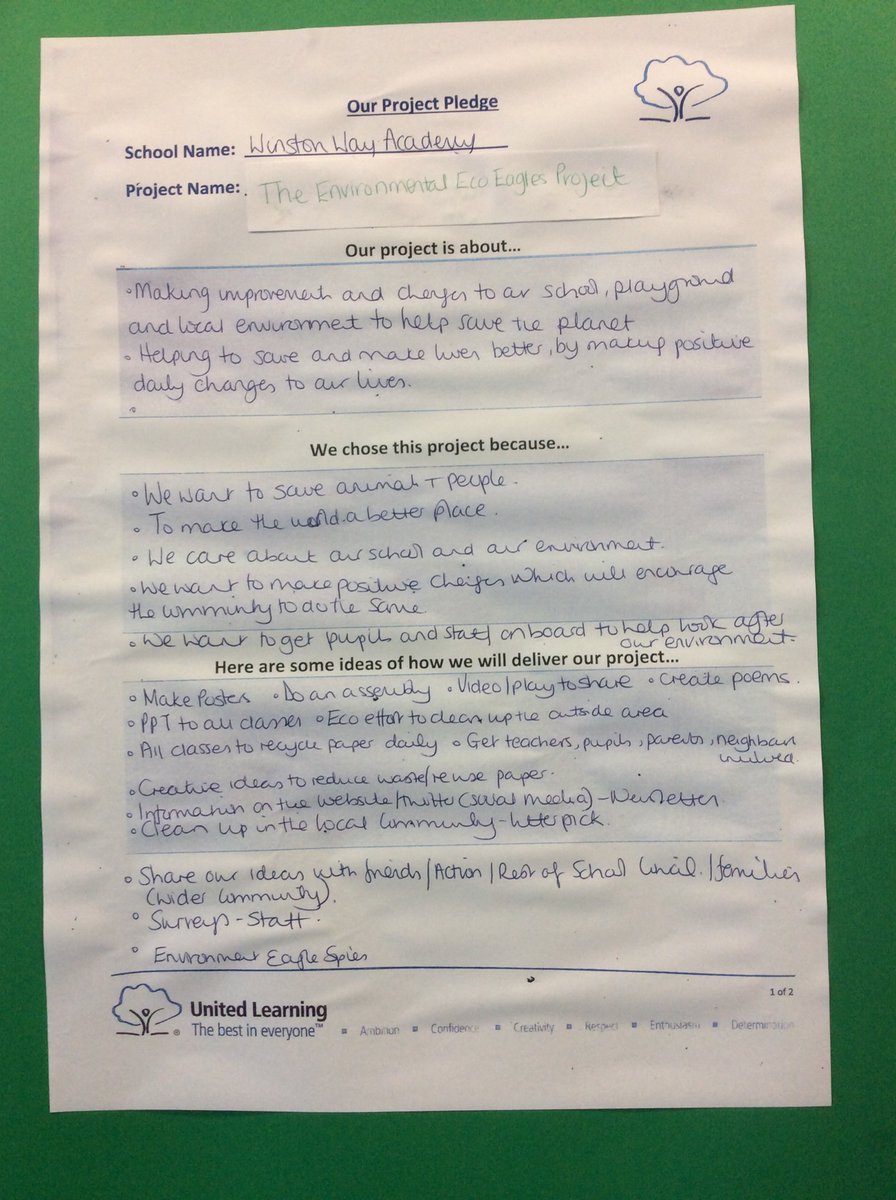 Our Project Pledge
School Name: Winston Way Academy
Project Name: The Environmental Eco Eagles Project
Our project is about...
• Making improvements and changes to our school, playground
and local environment to help save the planet
• Helping to save and make lives better, by making positive
daily changes to our lives.
We chose this project because...
• We want to save animals + people.
• To make the world a better place.
• We care about our school and our environment.
• We want to make positive changes which will encourage
the community to do the same.
• We want to get pupils and staff on board to help look after
our environment.
Here are some ideas of how we will deliver our project...
• Make Posters • Do an assembly • Video/play to share • Create poems.
• PPT to all classes • Eco effort to clean up the outside area
• All classes to recycle paper daily • Get teachers, pupils, parents, neighbours
involved.
• Creative ideas to reduce waste/reuse paper.
• Information on the website/twitter (social media) - Newsletter.
• Clean up in the local community - litter pick.
• Share our ideas with friends/Action/Rest of School Council./families
(wider community).
• Surveys - Staff.
• Environment Eagle Spies
1 of 2
United Learning
The best in everyone™ ▪ Ambition ▪ Confidence ▪ Creativity ▪ Respect ▪ Enthusiasm ▪ Determination